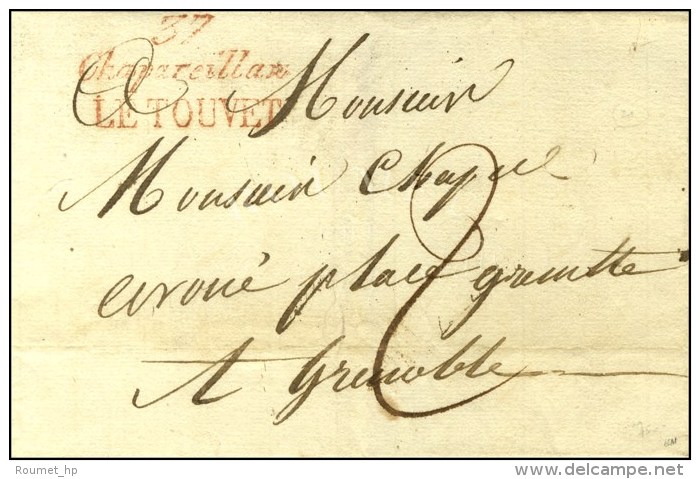 37
Chapareillan
LE TOUVET
A Monsieur
Monsieur Chapu
avoué place grenette
A Grenoble
2
Roumet_hp
www.delcampe.net